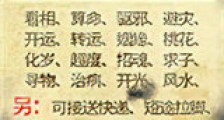 看相、算命、驱邪、避灾、
开运、转运、姻缘、桃花、
化岁、超度、招魂、求子、
寻物、治病、开光、风水、
另：可接送快递、短途拉脚、